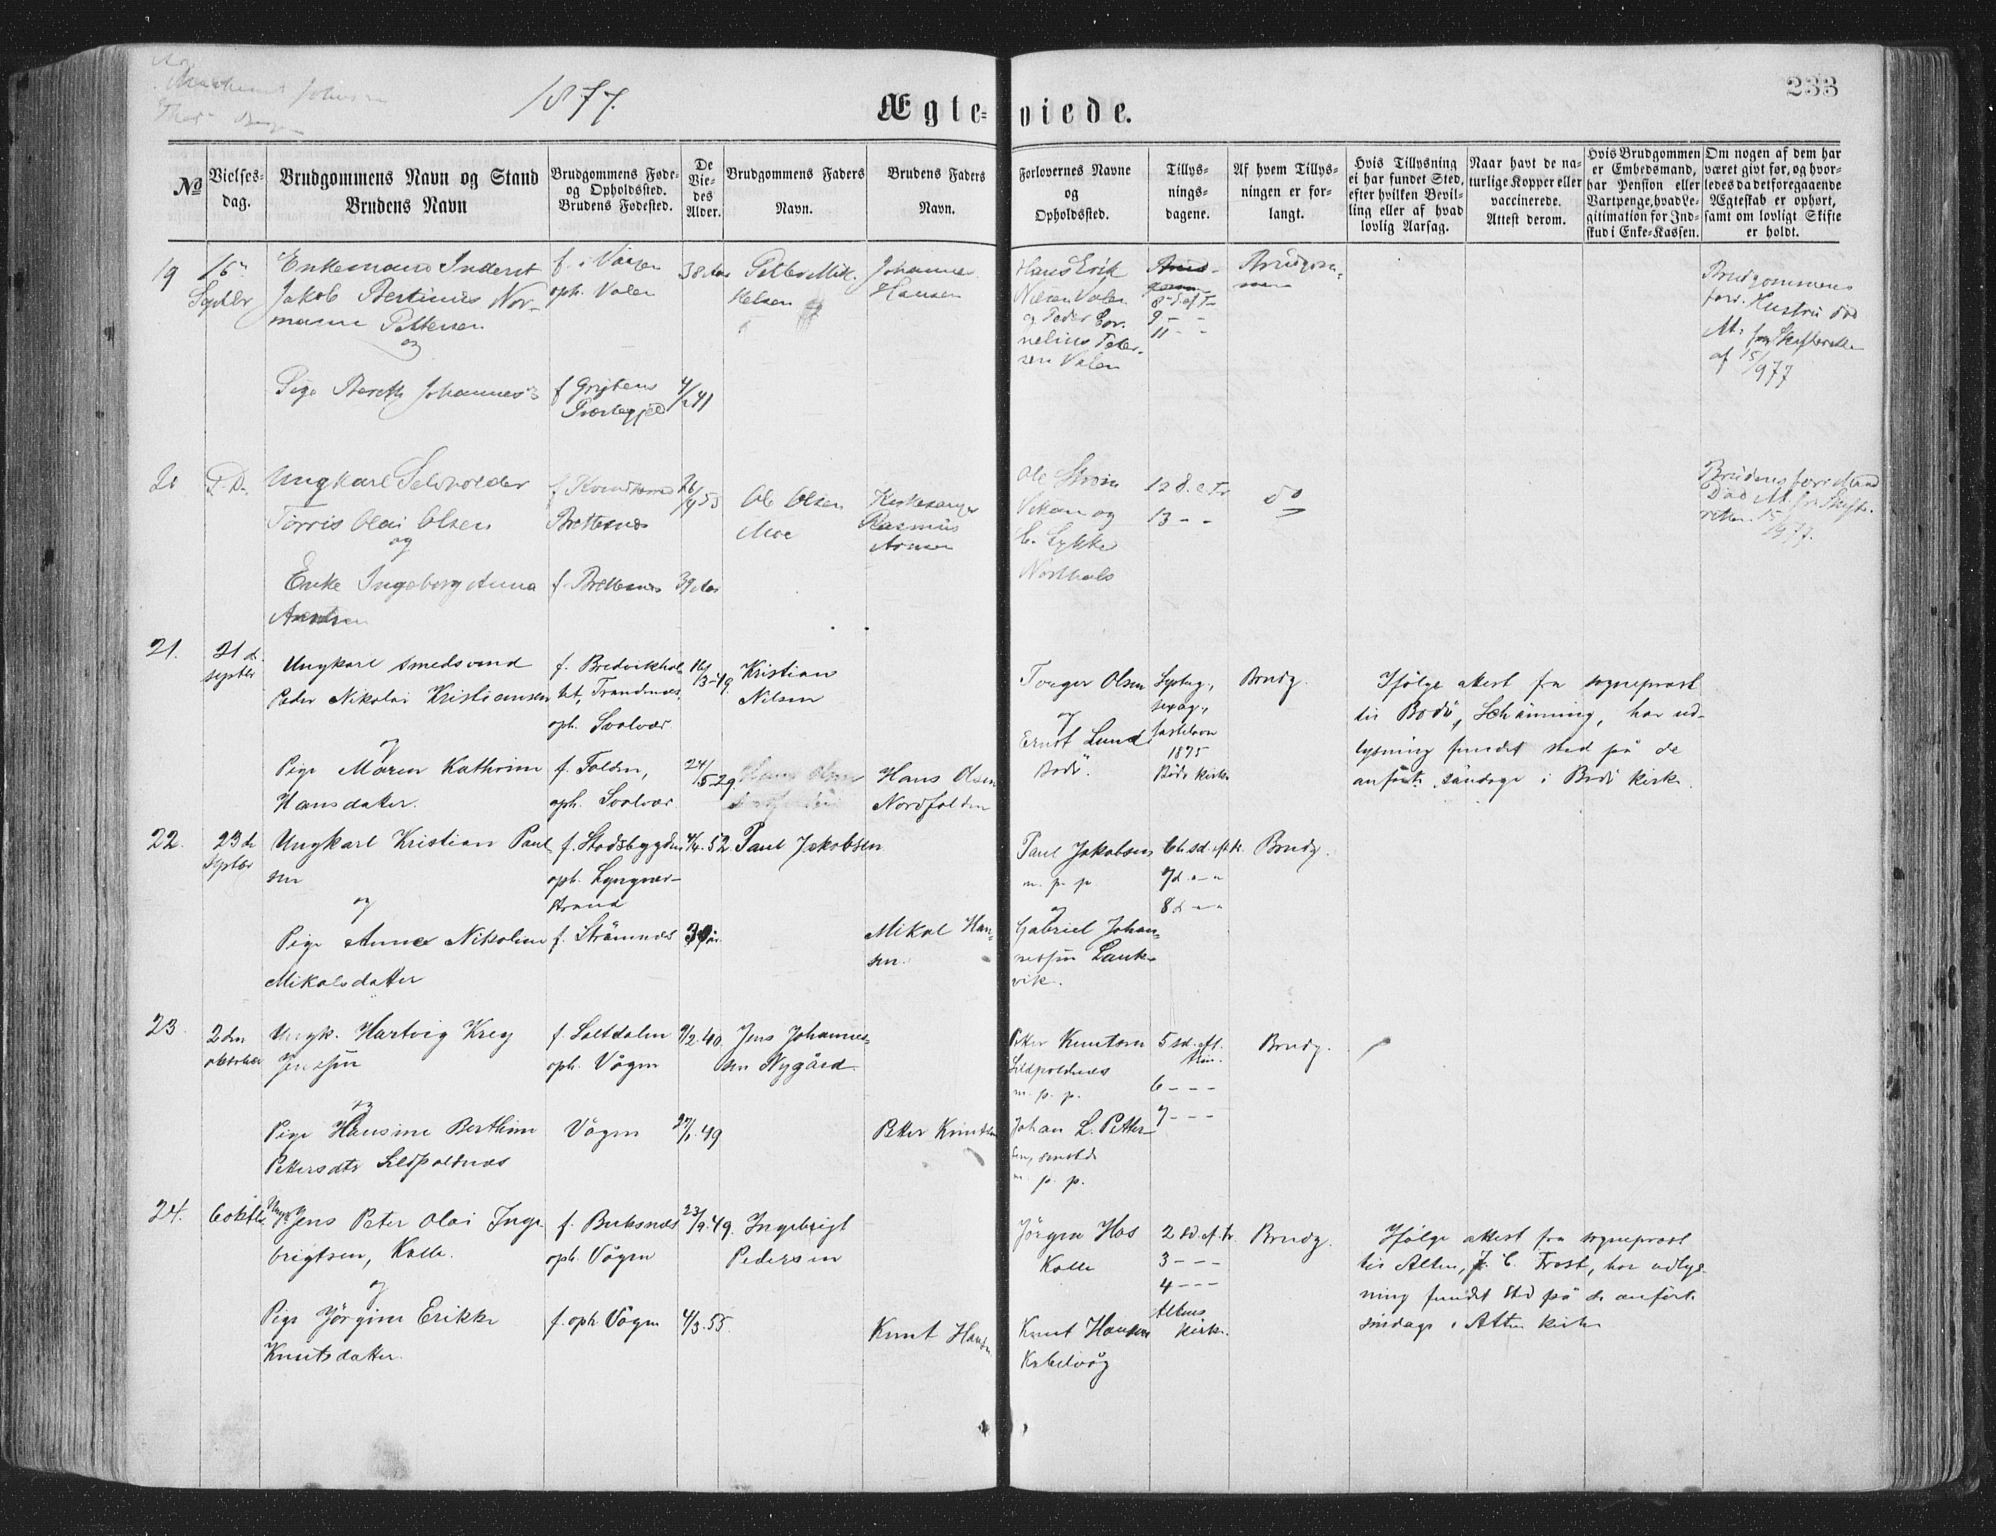 1877.
Ægte- viede.
233
No
Vielses-
dag.
Brudgommens Navn og Stand
Brudens Navn
Brudgommens Føde-
og Opholdssted.
Brudens Fødested.
De
Vie-
des
Alder.
Brudgommens Faders
Navn.
Brudens Faders
Navn.
Forlovernes Navne
og
Opholdssted.
Tillys-
nings-
dagene.
Af hvem Tillys-
ningen er for-
langt.
Hvis Tillysning
ei har fundet Sted,
efter hvilken Bevil-
ling eller af hvad
lovlig Aarsag.
Naar havt de na-
turlige Kopper eller
vaccinerede.
Attest derom.
Hvis Brudgommen
er Embedsmand,
har Pension eller
Vartpenge, hvad Le-
gitimation for Ind-
skud i Enke-Kassen.
Om nogen af dem har
været givt før, og hvor-
ledes da det foregaaende
Ægteskab er ophørt,
samt om lovligt Skifte
er holdt.
19
Septbr
Enkemand Inderst
Jakob Bertinus Nor-
mann Pettersen
og
Pige Bereth Johannes
f. i Vågen
oph. Valen
f Gryten
Præstegjeld
38 Aar
4/2 41
Petter Mik-
kelsen
Johannes
Hansen
Hans Erik
Nilsen Valen
og Peder Cor-
nelius Peter-
sen Valen
8 d. ef. Tr
9 - -
11 - -
Brudgom-
men
Brudgommens
forr. Hustru død
af 15/9 77
Ungkarl Selvholder
Tørris Olai Olsen
og
Enke Ingeborg Anna
f. Brettesnes
Brettesnes
39 Aar
Ole Olsen
Moe
Kirkesanger
Rasmus
Ole Strøm
Vikan og
C. Lykke
12 S. e. Tr.
13 - -
do
Brudens forr. Mand
21.
21 d.
septbr
Ungkarl smedsvend
Peder Nikolai Kristiansen
og
Pige Maren Kathrine
Hansdatter.
f. Bredvikhol-
tet, Trandenæs,
oph. Svolvær
f. Folden,
oph. Svolvær
16/3-49.
24/5-29.
Kristian
Nilsen
Hans Olsen
Nordfolden
Hans Olsen
Nordfolden
Olsen
og
Ernst Lund
Bodø.
Septug.,
sexag.,
fastelavn
1875
Bodø kirke
Brudg.
Ifølge attest fra sogneprest
til Bodø, Schønning, har ud-
lysning fundet sted på de
anførte søndage i Bodø kirke.
22.
23de
Septbr
Ungkarl Kristian Paul-
sen
og
Pige Anna Nikoline
Mikalsdatter
f. Stodsbygden
oph. Lyngvær-
strand
f. Strømnes
4/4. 52.
Paul Jakobsen
Mikal Han-
sen.
Paul Jakobsen
m. p. p
og
Gabriel Johan-
nessen Lauk-
vik.
6te sd. ef. tr.
7d. - -
8d - -
Brudg.
23.
2den
oktober
Ungk. Hartvig Krey
Jenssen
og
Pige Hansine Berthine
Pettersdtr Sildpoldnes
f. Saltdalen
oph. Vågen
Vågen
9/2. 40.
27/1. 49
Jens Johannes-
sen Nygård
Petter Knutsen
Petter Knutsen
Sildpoldnes
m. p. p.
Johan L. Petter-
sen, smstd
m. p. p.
5 sd. eft.
trin.
6 - - -
7 - - -
Brudg.
24.
6 oktbr
Ungk. Jens Peter Olai Inge-
brigtsen, Kalle.
og
Pige Jørgine Erikke
Knutsdatter.
f. Buksnæs
oph. Vågen
f. oph. Vågen
23/9. 49.
4/3. 55.
Ingebrigt
Pedersen
Knut Hansen
Jørgen Hos
Kalle
Knut Hansen
Kabelvåg
2 sd. ef. tr.
3 - - -
4 - - -
Altens
kirke.
Brudg.
Ifølge attest fra sogneprest
til Alten, J. C. Frost, har udlys-
ning fundet sted på de anførte
søndage i Alten kirke